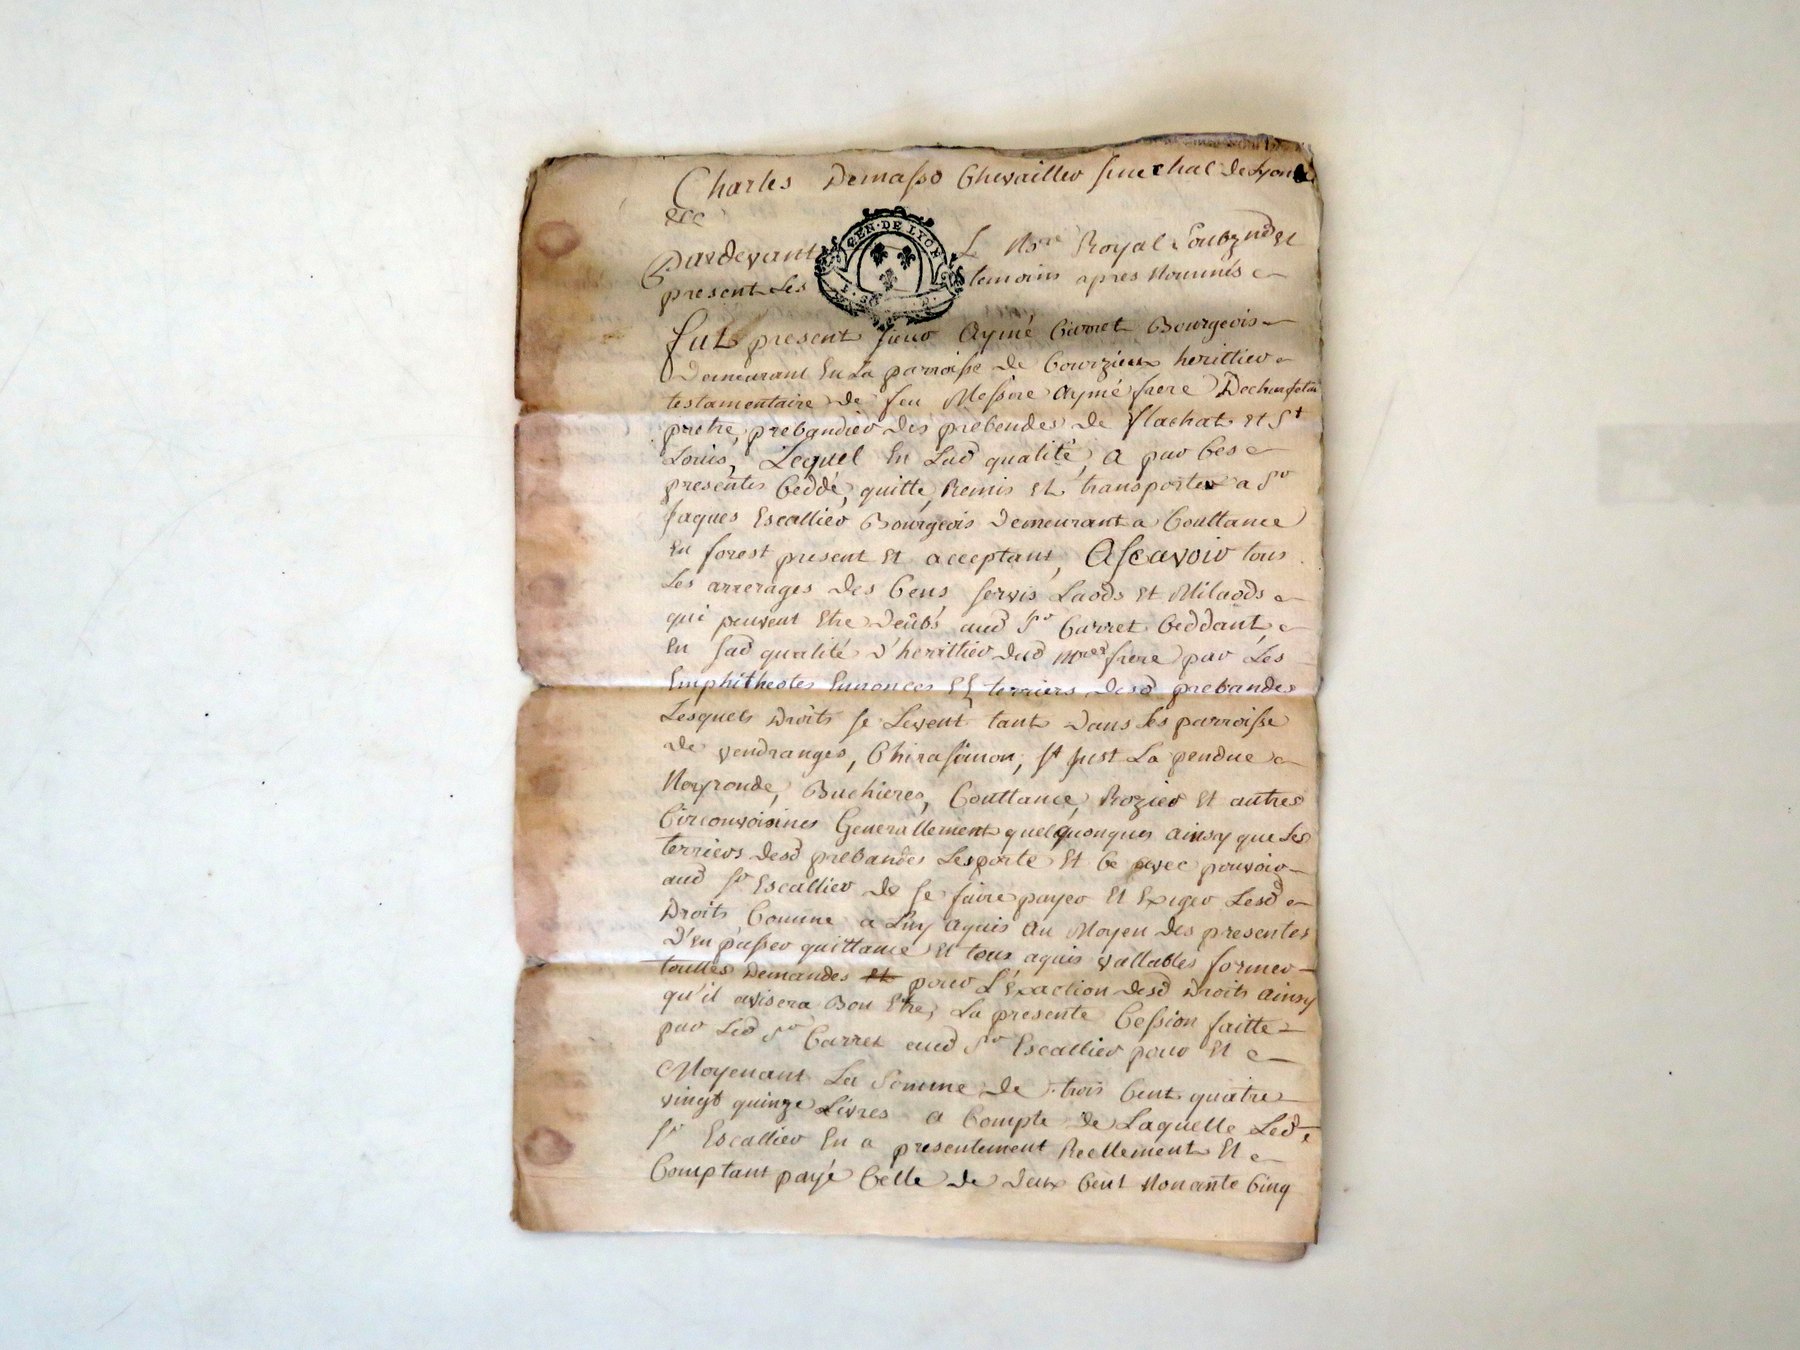 Charles Demasso Chevaillier senechal de Lyon
&c
Pardevant Le No.re Royal Soubz.nd et
GEN · DE LYON
present Les temoins apres Nommés
fut present sieur Aymé Carret Bourgeois
Demeurant En La parroisse de heritier
testamentaire de feu Messire Aymé frere
pretre, prebandier des prebendes de flachat et St
Louis, Lequel En Sad qualité, a par Ces
presentes Ceddé, quitté, Remis et transporter a Sr
Jaques Escallier Bourgeois Demeurant a Couttance
En forest present et acceptant, Ascavoir tous
Les arrerages des Cens servis Laods et Milaods
qui peuvent Etre deübs aud Sr Carret Ceddant
En sad qualité d'herittier dud Mre frere par Les
Emphitheotes Ennoncés Es terriers desd prebandes
Lesquels Droits se Levent tant dans Les parroisse
de vendranges, Chirasimon, St Just La pendue
Neyronde, Buchieres, Couttance, Rozier et autres
Circonvoisines Generallement quelquonques ainsy que Les
terriers desd prebandes Lesporte et Ce avec pouvoir
aud Sr Escallier de se faire payer et Exiger Lesd
Droits Comme a Luy aquis au Moyen des presentes
D'en passer quittance et tous aquis vallables former
touttes Demandes et pour L'Exaction desd Droits ainsy
qu'il avisera Bon Etre, La presente Cession faitte
par Led Sr Carret aud Sr Escallier pour et
Moyenant La somme de trois Cent quatre
vingt quinze Livres a Compte de Laquelle Led
Sr Escallier En a presentement Reellement et
Comptant payé Celle de deux Cent Nonante Cinq